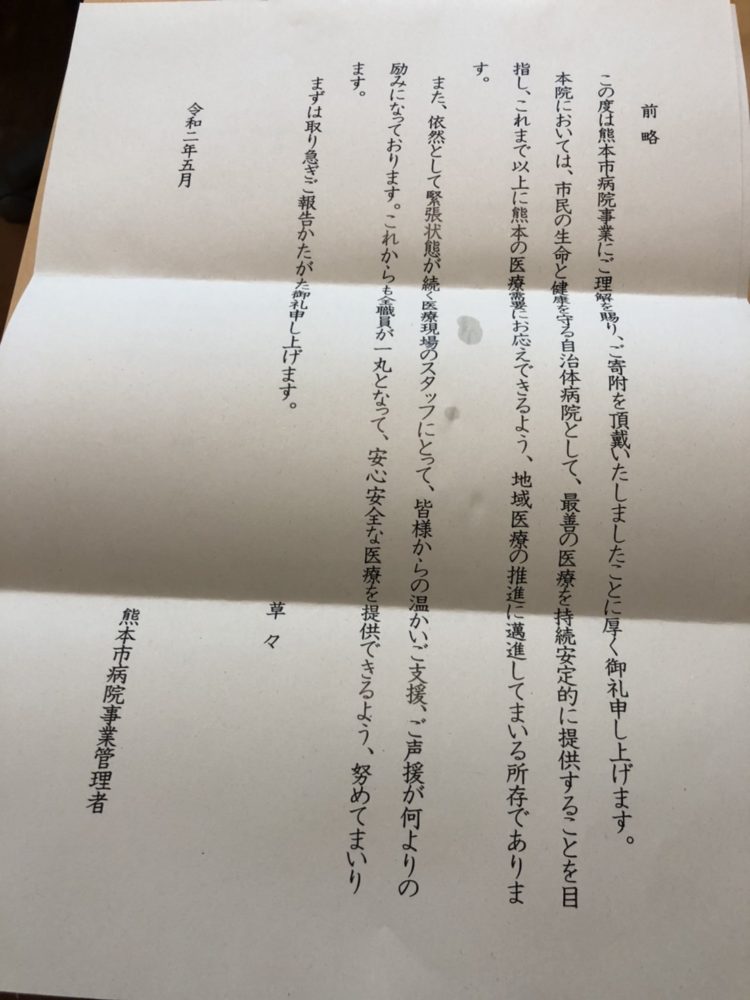 前略
この度は熊本市病院事業にご理解を賜り、ご寄附を頂戴いたしましたことに厚く御礼申し上げます。
本院においては、市民の生命と健康を守る自治体病院として、最善の医療を持続安定的に提供することを目
指し、これまで以上に熊本の医療需要にお応えできるよう、地域医療の推進に邁進してまいる所存でありま
す。
また、依然として緊張状態が続く医療現場のスタッフにとって、皆様からの温かいご支援、ご声援が何よりの
励みになっております。これからも全職員が一丸となって、安心安全な医療を提供できるよう、努めてまいり
ます。
まずは取り急ぎご報告かたがた御礼申し上げます。
草々
令和二年五月
熊本市病院事業管理者